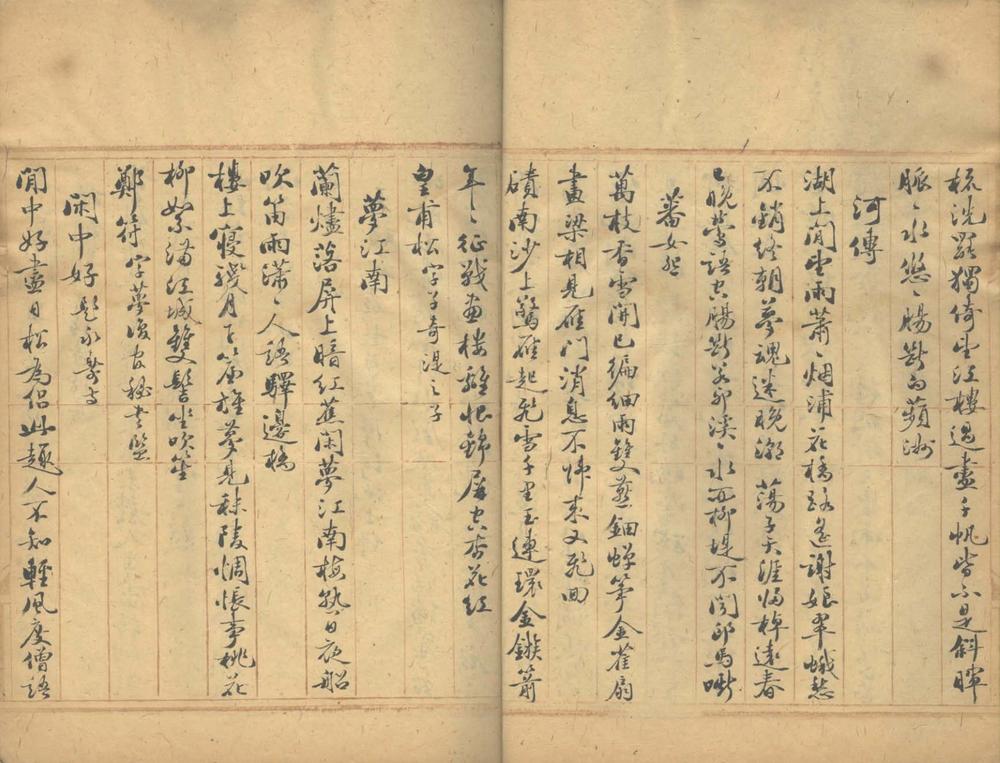 梳洗罷獨倚望江樓過盡千帆皆不是斜暉
脈〻水悠〻腸斷白蘋洲
河傳
湖上閒望雨蕭〻烟浦花橋路遙謝娘翠蛾愁
不銷終朝夢魂迷晚潮 蕩子天涯歸棹遠春
已晚鶯語空腸斷若邪溪〻水西柳堤不聞郎馬嘶
蕃女怨
萬枝香雪開已徧細雨雙燕鈿蟬箏金雀扇
畫梁相見雁門消息不歸來又飛回
磧南沙上驚雁起飛雪千里玉連環金鏃箭
年〻征戰畫樓離恨錦屏空杏花紅
皇甫松字子奇湜之子
夢江南
蘭燼落屏上暗紅蕉閑夢江南梅熟日夜船
吹笛雨瀟〻人語驛邊橋
樓上寢殘月下簾旌夢見秣陵惆悵事桃花
柳絮滿江城雙髻坐吹笙
鄭符字夢復官秘書監
閑中好 題永壽寺
閒中好盡日松為侶此趣人不知輕風度僧語